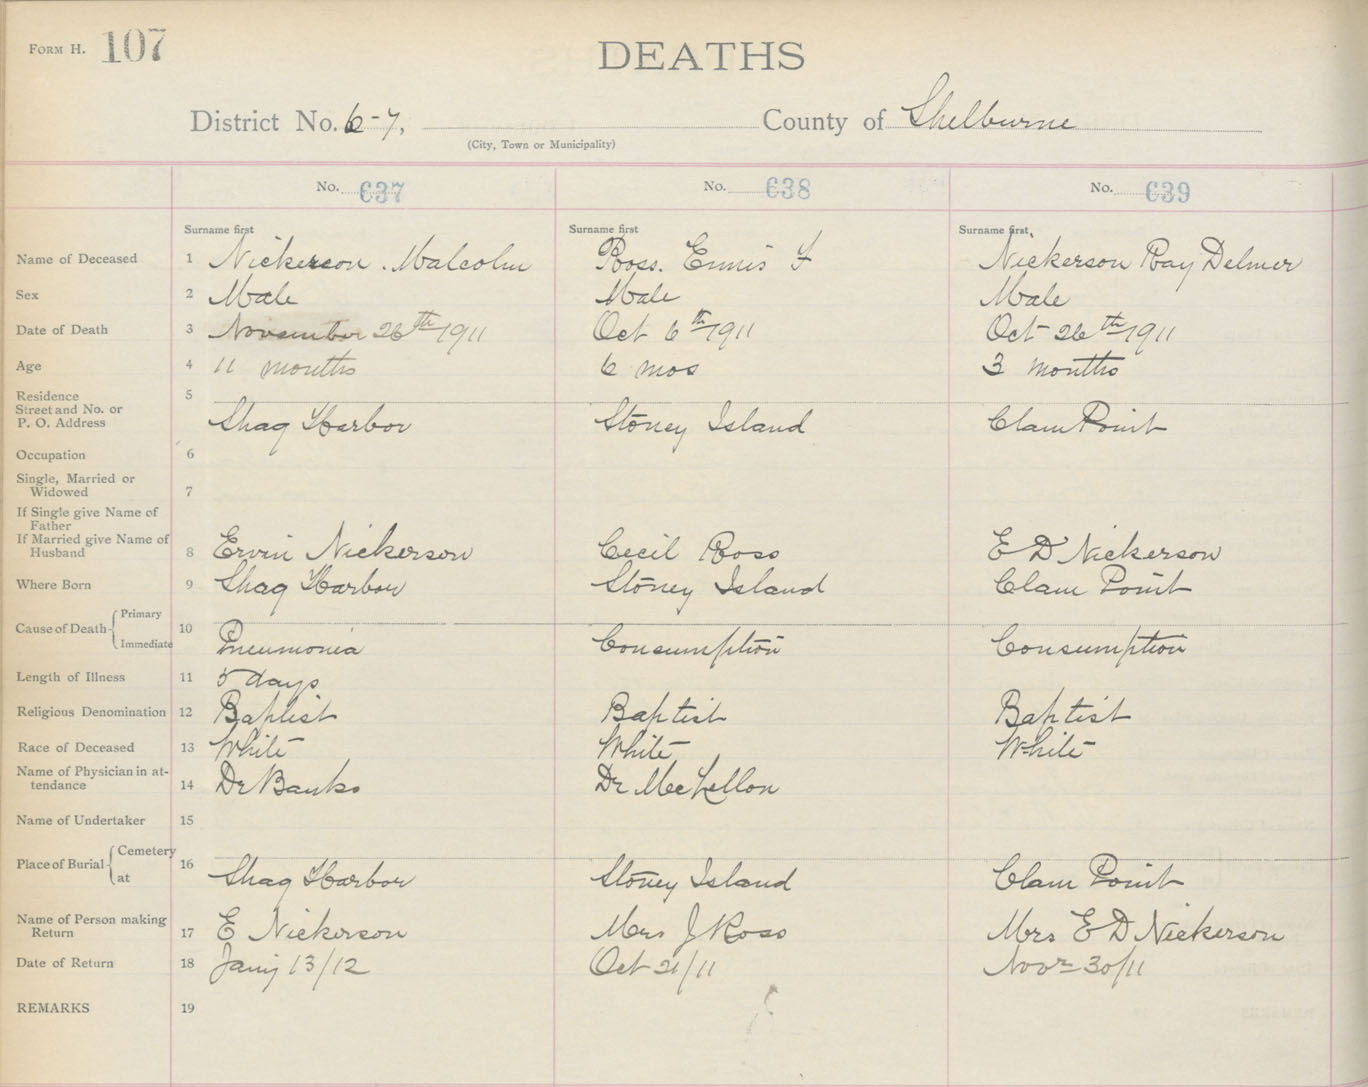 FORM H. 107
DEATHS
District No. 6-7, County of Shelburne
(City, Town or Municipality)
No. 637 No. 638 No. 639
Surname first Surname first Surname first
Name of Deceased 1 Nickerson. Malcolm Ross. Ennis F Nickerson Ray Delmer
Sex 2 Male Male Male
Date of Death 3 November 26th 1911 Oct 6th 1911 Oct 26th 1911
Age 4 11 months 6 mos 3 months
Residence 5
Street and No. or
P. O. Address Shag Harbor Stoney Island Clam Point
Occupation 6
Single, Married or
Widowed 7
If Single give Name of
Father
If Married give Name of
Husband 8 Ervin Nickerson Cecil Ross E D Nickerson
Where Born 9 Shag Harbor Stoney Island Clam Point
Primary
Cause of Death 10
Immediate Pneumonia Consumption Consumption
Length of Illness 11 5 days
Religious Denomination 12 Baptist Baptist Baptist
Race of Deceased 13 White White White
Name of Physician in at-
tendance 14 Dr Banks Dr
Name of Undertaker 15
Cemetery
Place of Burial 16
at Shag Harbor Stoney Island Clam Point
Name of Person making
Return 17 E Nickerson Mrs J Ross Mrs E D Nickerson
Date of Return 18 Jany 13/12 Oct 21/11 Novr 30/11
REMARKS 19